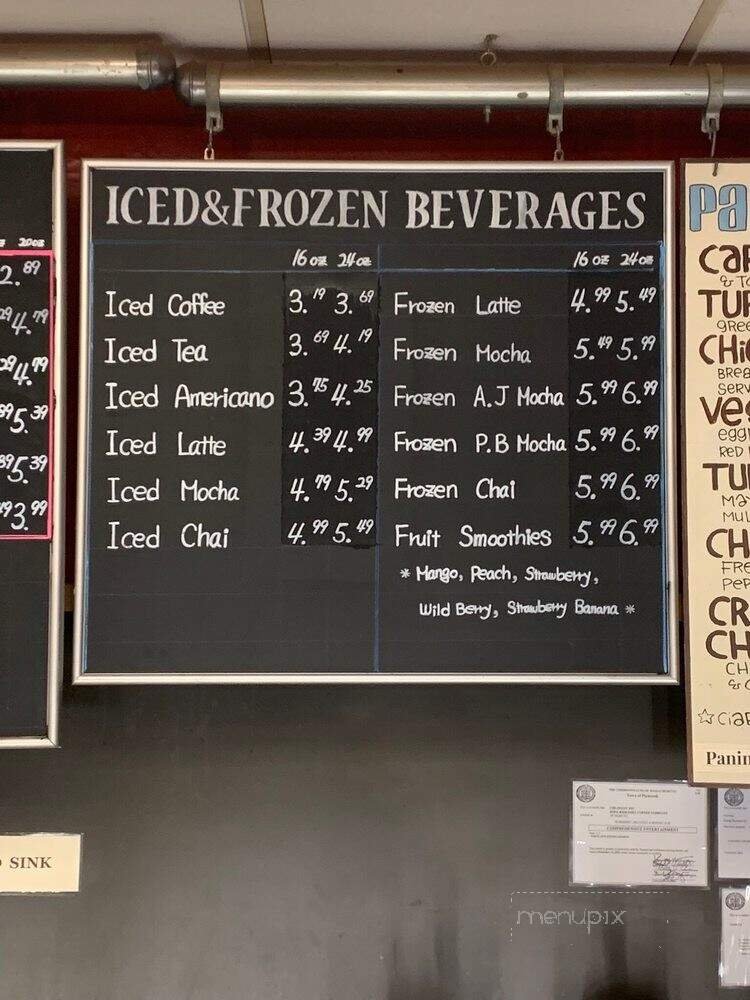 ICED&FROZEN BEVERAGES
16 oz 24 oz
Iced Coffee 3.19 3.69
Iced Tea 3.69 4.19
Iced Americano 3.75 4.25
Iced Latte 4.39 4.99
Iced Mocha 4.79 5.29
Iced Chai 4.99 5.49
16 oz 24 oz
Frozen Latte 4.99 5.49
Frozen Mocha 5.49 5.99
Frozen A.J Mocha 5.99 6.99
Frozen P.B Mocha 5.99 6.99
Frozen Chai 5.99 6.99
Fruit Smoothies 5.99 6.99
* Mango, Peach, Strawberry,
Wild Berry, Strawberry Banana *
20oz
2.89
4.79
4.79
5.39
5.39
3.99
Pa
Cap
& To
TUR
gree
CHi
BREA
SERV
Ve
egg
RED
TU
Ma
MUL
CH
FRE
PEP
CR
CH
CH
& C
☆ Ciab
Panin
SINK
COMPREHENSIVE ENTERTAINMENT
menupix